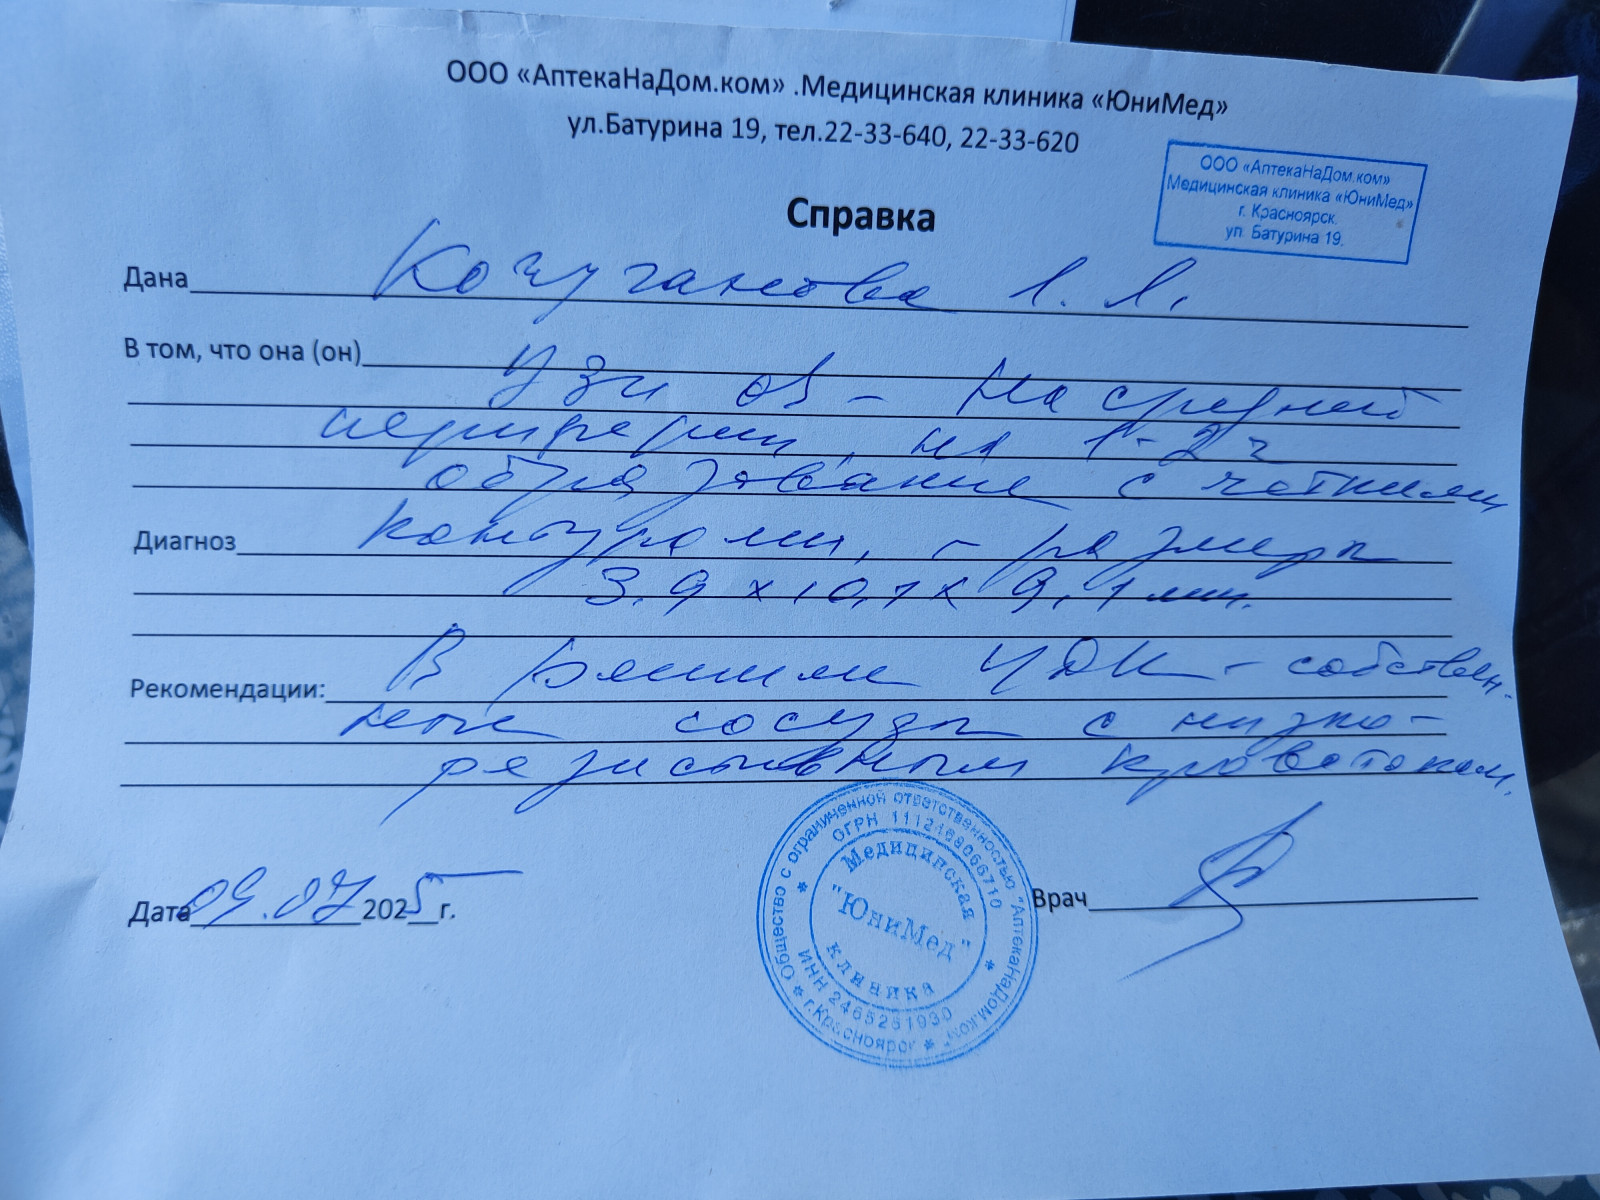 ООО «АптекаНаДом.ком» .Медицинская клиника «ЮниМед»
ул.Батурина 19, тел.22-33-640, 22-33-620
ООО «АптекаНаДом.ком»
Медицинская клиника «ЮниМед»
г. Красноярск.
ул. Батурина 19.
Справка
Дана
В том, что она (он) Узи OS - На средней
периферии, на 1-2 ч
образование с четкими
Диагноз контурами, - размеры
3,9 х 10,1 х 9,1 мм.
Рекомендации: В режиме ЦДК - собствен-
ные сосуды с низко-
резистивным кровотоком.
Дата 09.07 2025 г.
Врач
Общество с ограниченной ответственностью "АптекаНаДом.ком" * г.Красноярск *
ОГРН
ИНН
Медицинская
"ЮниМед"
клиника